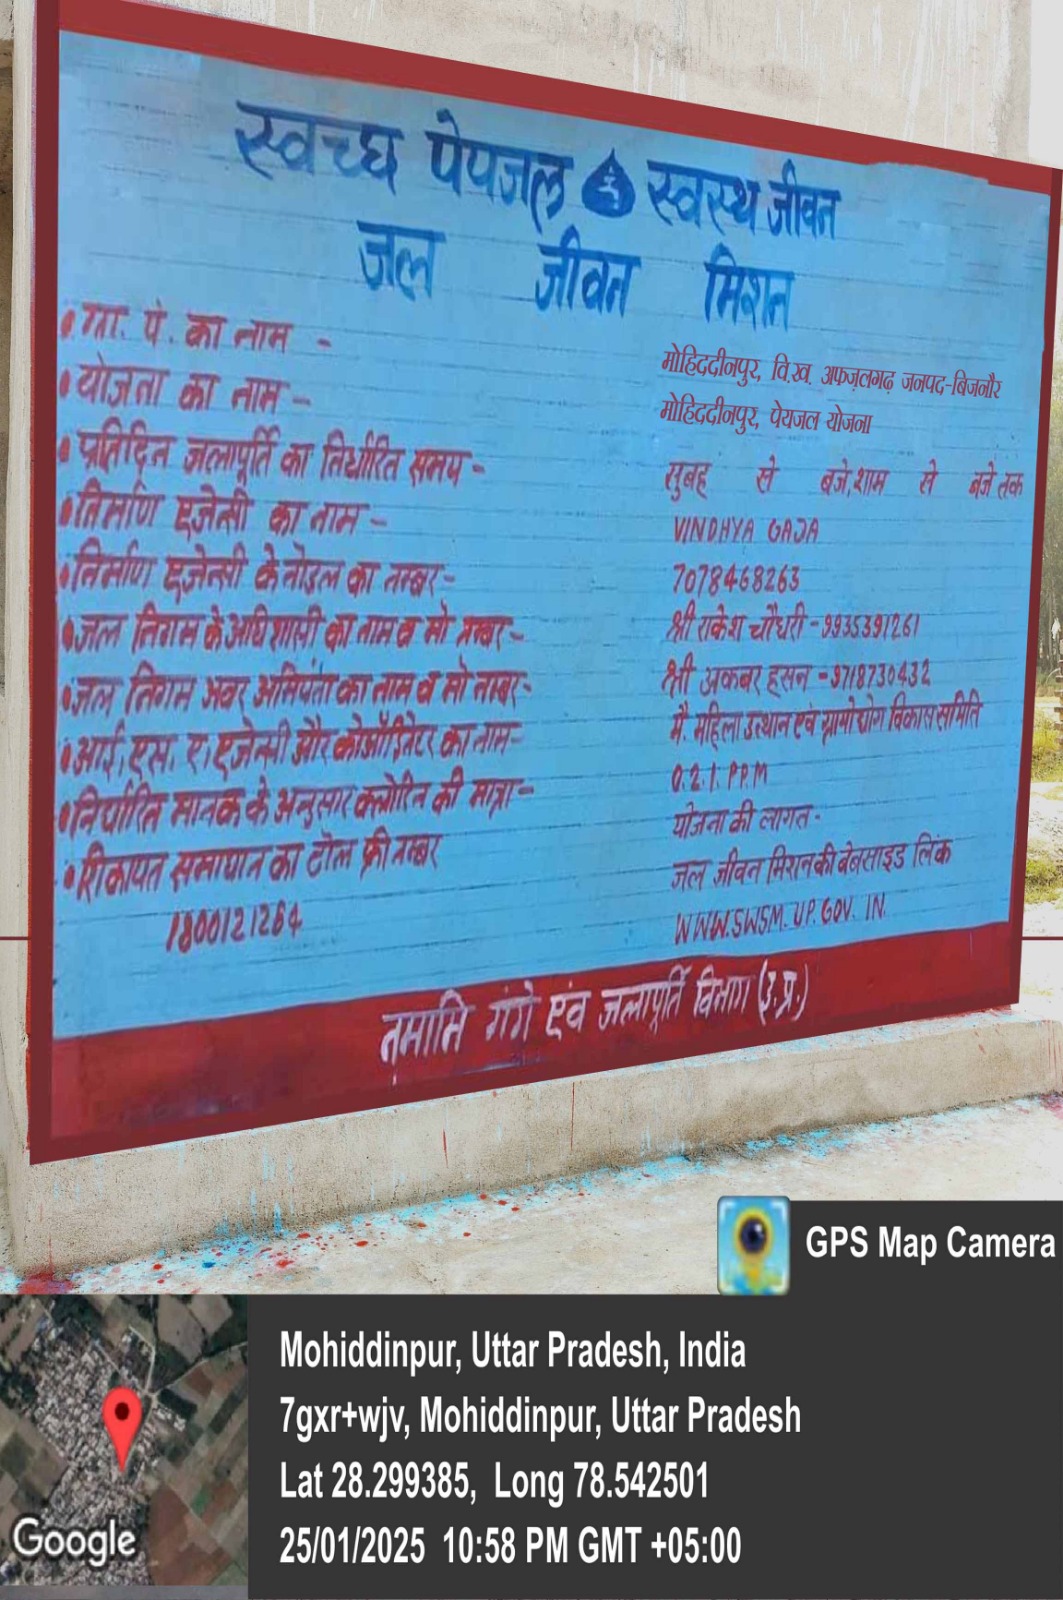 स्वच्छ पेपजल स्वस्थ जीवन
जल जीवन मिशन
• ग्रा. पं. का नाम -
मोहिददीनपुर, वि.ख. अफज़लगढ़ जनपद-बिजनौर
• योजता का नाम -
मोहिददीनपुर, पेयजल योजना
• प्रतिदिन जलापूर्ति का निर्धारित समय -
सुबह से बजे, शाम से बजे तक
• निर्माण एजेन्सी का नाम -
VINDHYA GAJA
• निर्माण एजेन्सी के नोडल का नम्बर -
7078468263
• जल निगम के अधिशासी का नाम व मो नम्बर -
श्री राकेश चौधरी - 9935391261
• जल निगम अवर अभियंता का नाम व मो नम्बर -
श्री अकबर हसन - 9718730432
• आई. एस. ए. एजेन्सी और कोऑर्डिनेटर का नाम -
मै. महिला उत्थान एवं ग्रामोद्योग विकास समिति
• निर्धारित मानक के अनुसार क्लोरिन की मात्रा -
0.2.1. P.P.M
योजना की लागत -
• शिकायत समाधान का टोल फ्री नम्बर
जल जीवन मिशन की बेबसाइड लिंक
1800121264
WWW.SWSM.UP.GOV.IN.
नमामि गंगे एंव जलापूर्ति विभाग (उ.प्र.)
GPS Map Camera
Mohiddinpur, Uttar Pradesh, India
7gxr+wjv, Mohiddinpur, Uttar Pradesh
Lat 28.299385, Long 78.542501
25/01/2025 10:58 PM GMT +05:00
Google